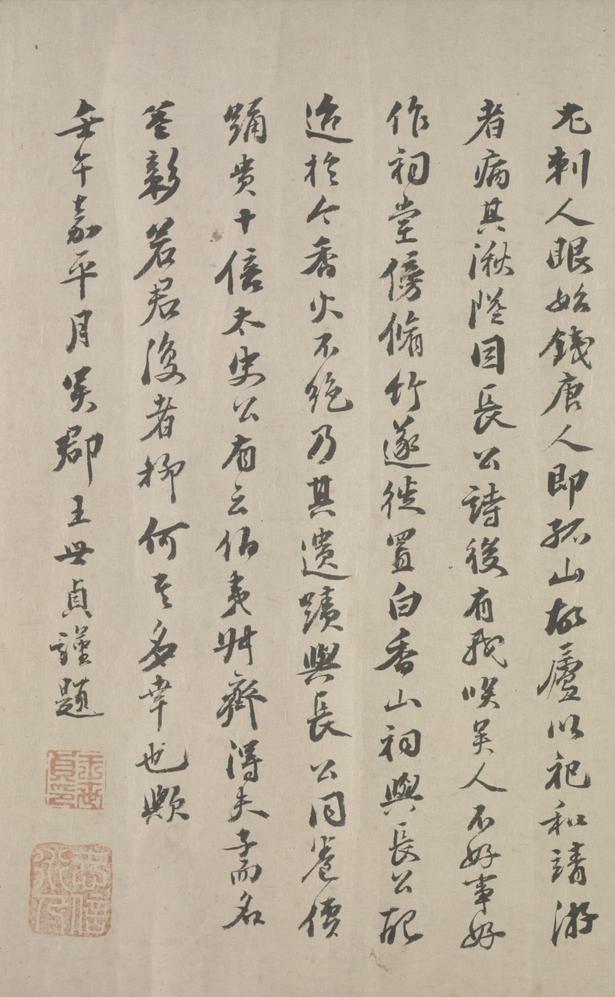 尤刺人眼始錢唐人即孤山故廬以祀和靖游
者病其湫隘因長公詩後有我咲吳人不好事好
作祠堂傍脩竹遂徙置白香山祠與長公配
迨於今香火不絕乃其遺蹟與長公同卷價
踊貴十倍太史公有云伯夷叔齊得夫子而名
益彰若君復者抑何其多幸也歟
壬午嘉平月吳郡王世貞謹題
王世貞印